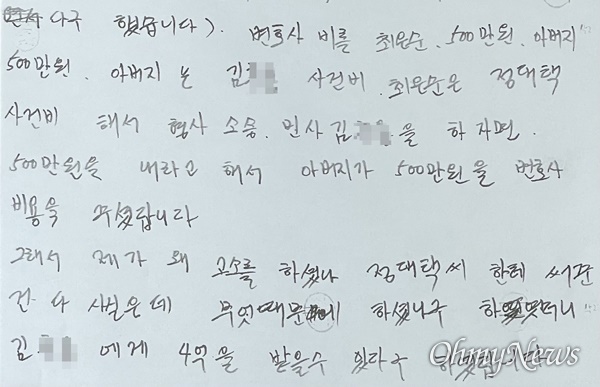 다구 했습니다). 변호사 비를 최은순. 500만원. 아버지
500만원. 아버지 는 김 사건비. 최은순은 정대택
사건비 해서 형사 소송. 민사 김 을 하자면.
500만원을 내라고 해서 아버지가 500만원을 변호사
비용을 주셨답니다
그래서 제가 왜 고소를 하셨나 정대택씨 한테 써준
건 다 사실은데 무엇때문에 하셨냐구 하였더니
김 에게 4억을 받을수 있다구
OhmyNews